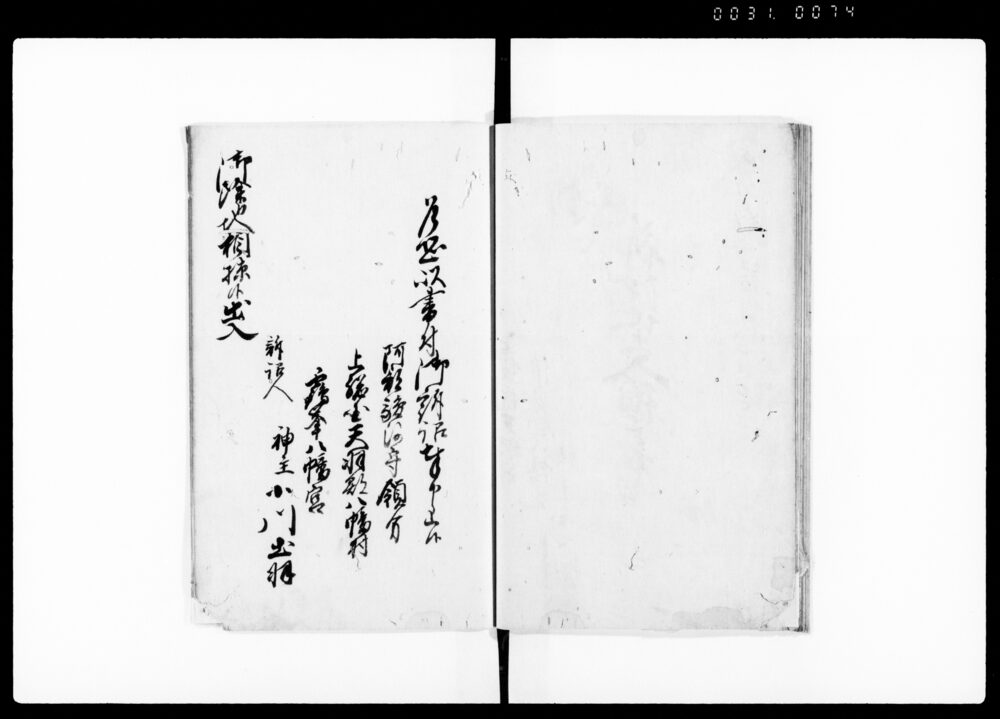 0031. 0074
乍恐以書付御訴訟奉申上候
阿部駿河守領分
上総国天羽郡八幡村
鶴峯八幡宮
訴訟人
神主小川出羽
御除地相掠候出入